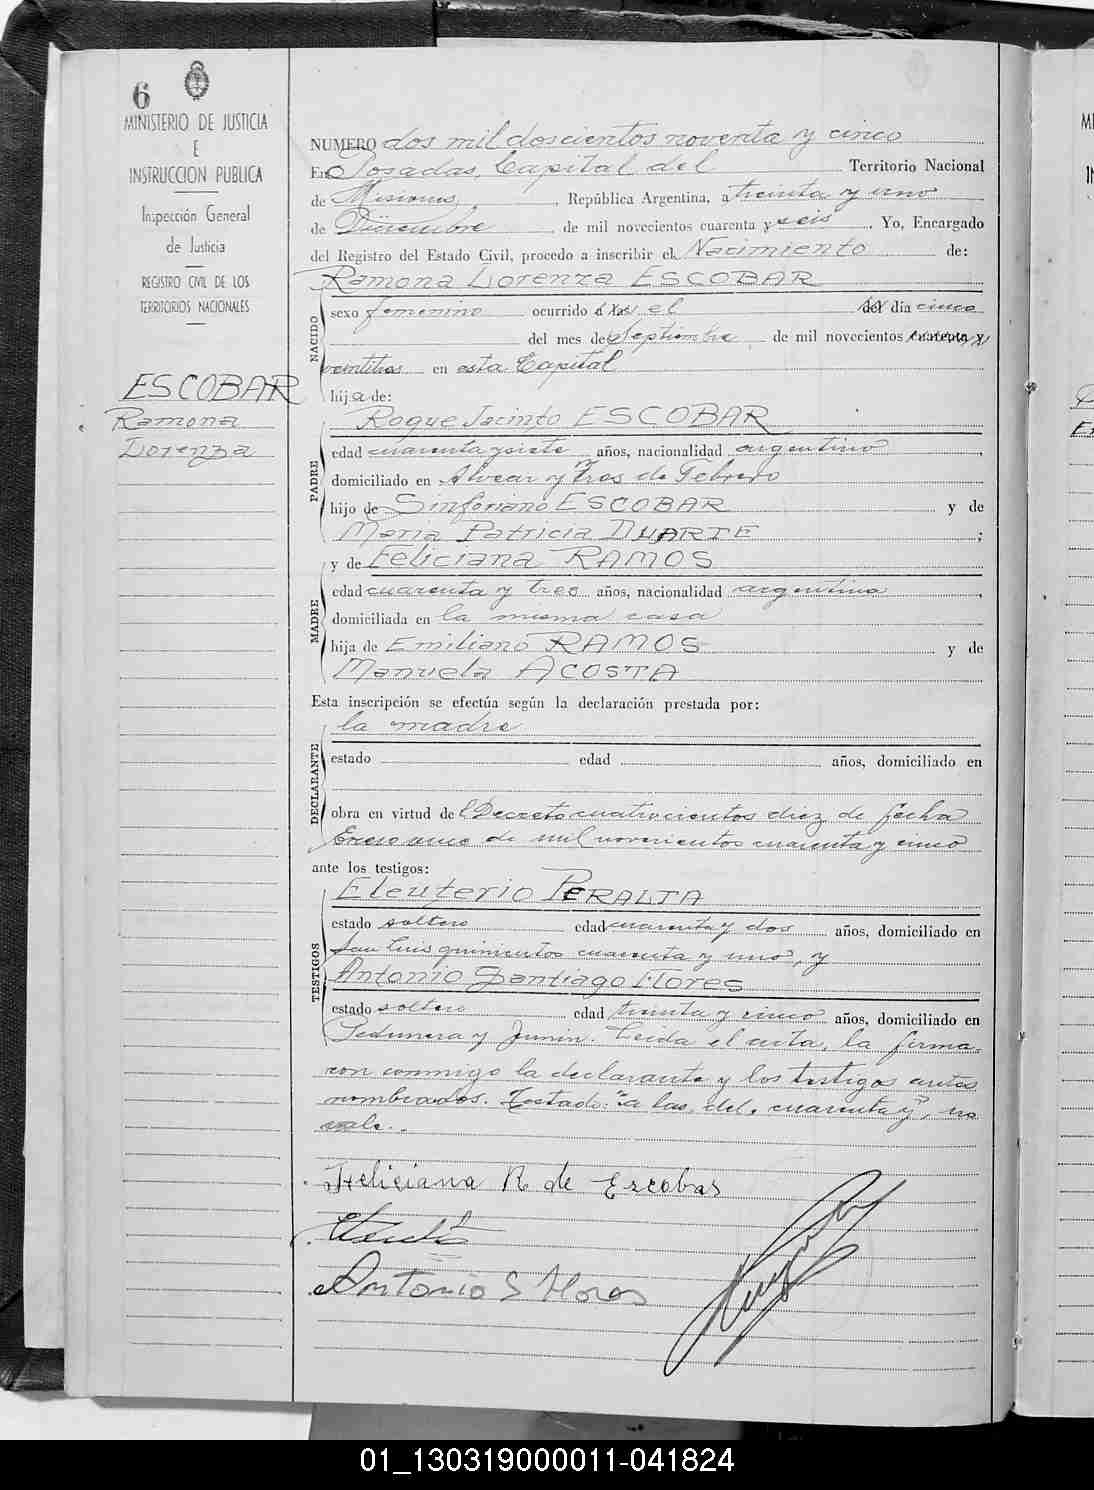 6
MINISTERIO DE JUSTICIA
E
INSTRUCCION PUBLICA
Inspección General
de Justicia
REGISTRO CIVIL DE LOS
TERRITORIOS NACIONALES
ESCOBAR
Ramona
Lorenza
NUMERO dos mil doscientos noventa y cinco
En Posadas, Capital del Territorio Nacional
de Misiones, República Argentina, a treinta y uno
de Diciembre de mil novecientos cuarenta y seis. Yo, Encargado
del Registro del Estado Civil, procedo a inscribir el Nacimiento de:
Ramona Lorenza ESCOBAR
NACIDO
sexo femenino ocurrido a las el del día cinco
del mes de Septiembre de mil novecientos cuarenta y
veintitres en esta Capital
hija de:
Roque Jacinto ESCOBAR
PADRE
edad cuarenta y siete años, nacionalidad argentino,
domiciliado en Alvear y Tres de Febrero
hijo de Sinforiano ESCOBAR y de
Maria Patricia DUARTE;
y de Feliciana RAMOS
MADRE
edad cuarenta y tres años, nacionalidad argentina,
domiciliada en la misma casa
hija de Emiliano RAMOS y de
Manuela ACOSTA
Esta inscripción se efectúa según la declaración prestada por:
la madre
DECLARANTE
estado edad años, domiciliado en
obra en virtud del Decreto cuatrocientos diez de fecha
Enero once de mil novecientos cuarenta y cinco
ante los testigos:
Eleuterio PERALTA
TESTIGOS
estado soltero edad cuarenta y dos años, domiciliado en
San Luis quinientos cuarenta y uno, y
Antonio Santiago Flores
estado soltero edad treinta y cinco años, domiciliado en
y Junin. Leida el acta, la firma
con conmigo la declarante y los testigos antes
nombrados. Testado: "a las, del, cuarenta y", no
vale.
Feliciana R de Escobar
Antonio S Flores
01_130319000011-041824